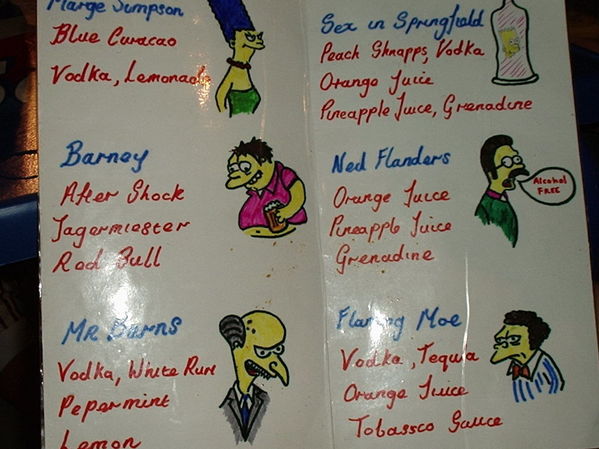 Marge Simpson
Blue Curacao
Vodka, Lemonade
Barney
After Shock
Jagermiester
Red Bull
Mr Burns
Vodka, White Rum
Pepermint
Lemon
Sex in Springfield
Peach Shnapps, Vodka
Orange Juice
Pineapple Juice, Grenadine
Ned Flanders
Orange Juice
Pineapple Juice
Grenadine
Alcohol
FREE
Flaming Moe
Vodka, Tequila
Orange Juice
Tobassco Sauce